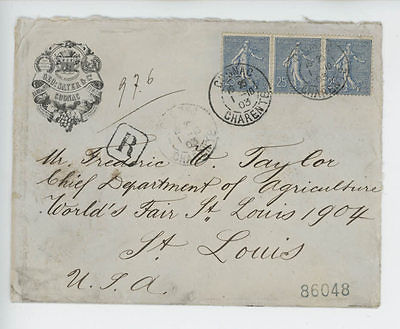 GEO. SAYER & Co
COGNAC
976
25
COGNAC
1
03
CHARENTE
R
Mr. Frederic W. Taylor
Chief Department of Agriculture
World's Fair St. Louis 1904
St. Louis
U.S.A.
86048